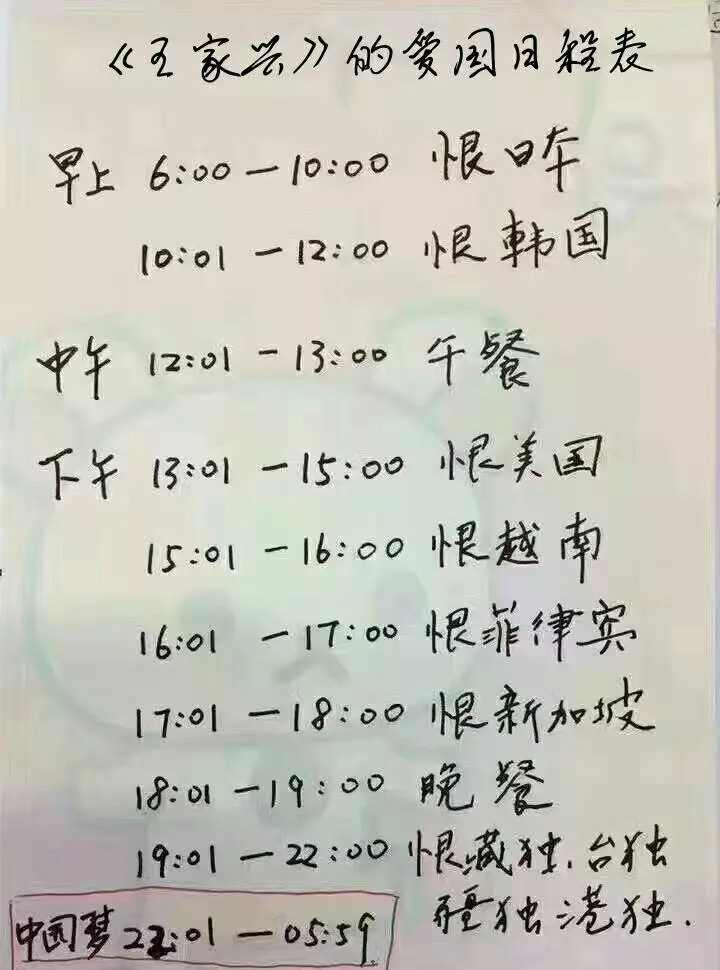 《王家兴》的爱国日程表
早上 6:00—10:00 恨日本
10:01—12:00 恨韩国
中午 12:01—13:00 午餐
下午 13:01—15:00 恨美国
15:01—16:00 恨越南
16:01—17:00 恨菲律宾
17:01—18:00 恨新加坡
18:01—19:00 晚餐
19:01—22:00 恨藏独、台独
疆独港独.
中国梦 22:01—05:59.